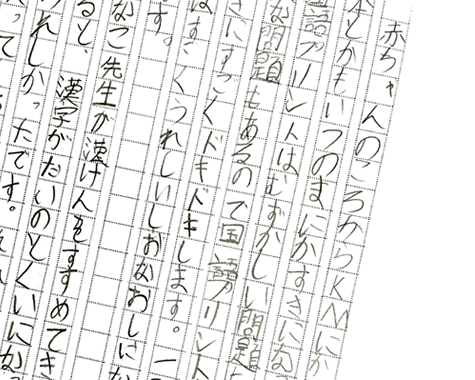 赤ちゃんのころからKMにか
とかもいつのまにかすきにな
語プリントはむずかしい問題
な問題もあるので国語プリント
きにすごくドキドキします。一
はすごくうれしいしおなおしにな
す。
なこ先生が漢けんをすすめてき
ると、漢字がだいのとくいにな
れしかったです。
って